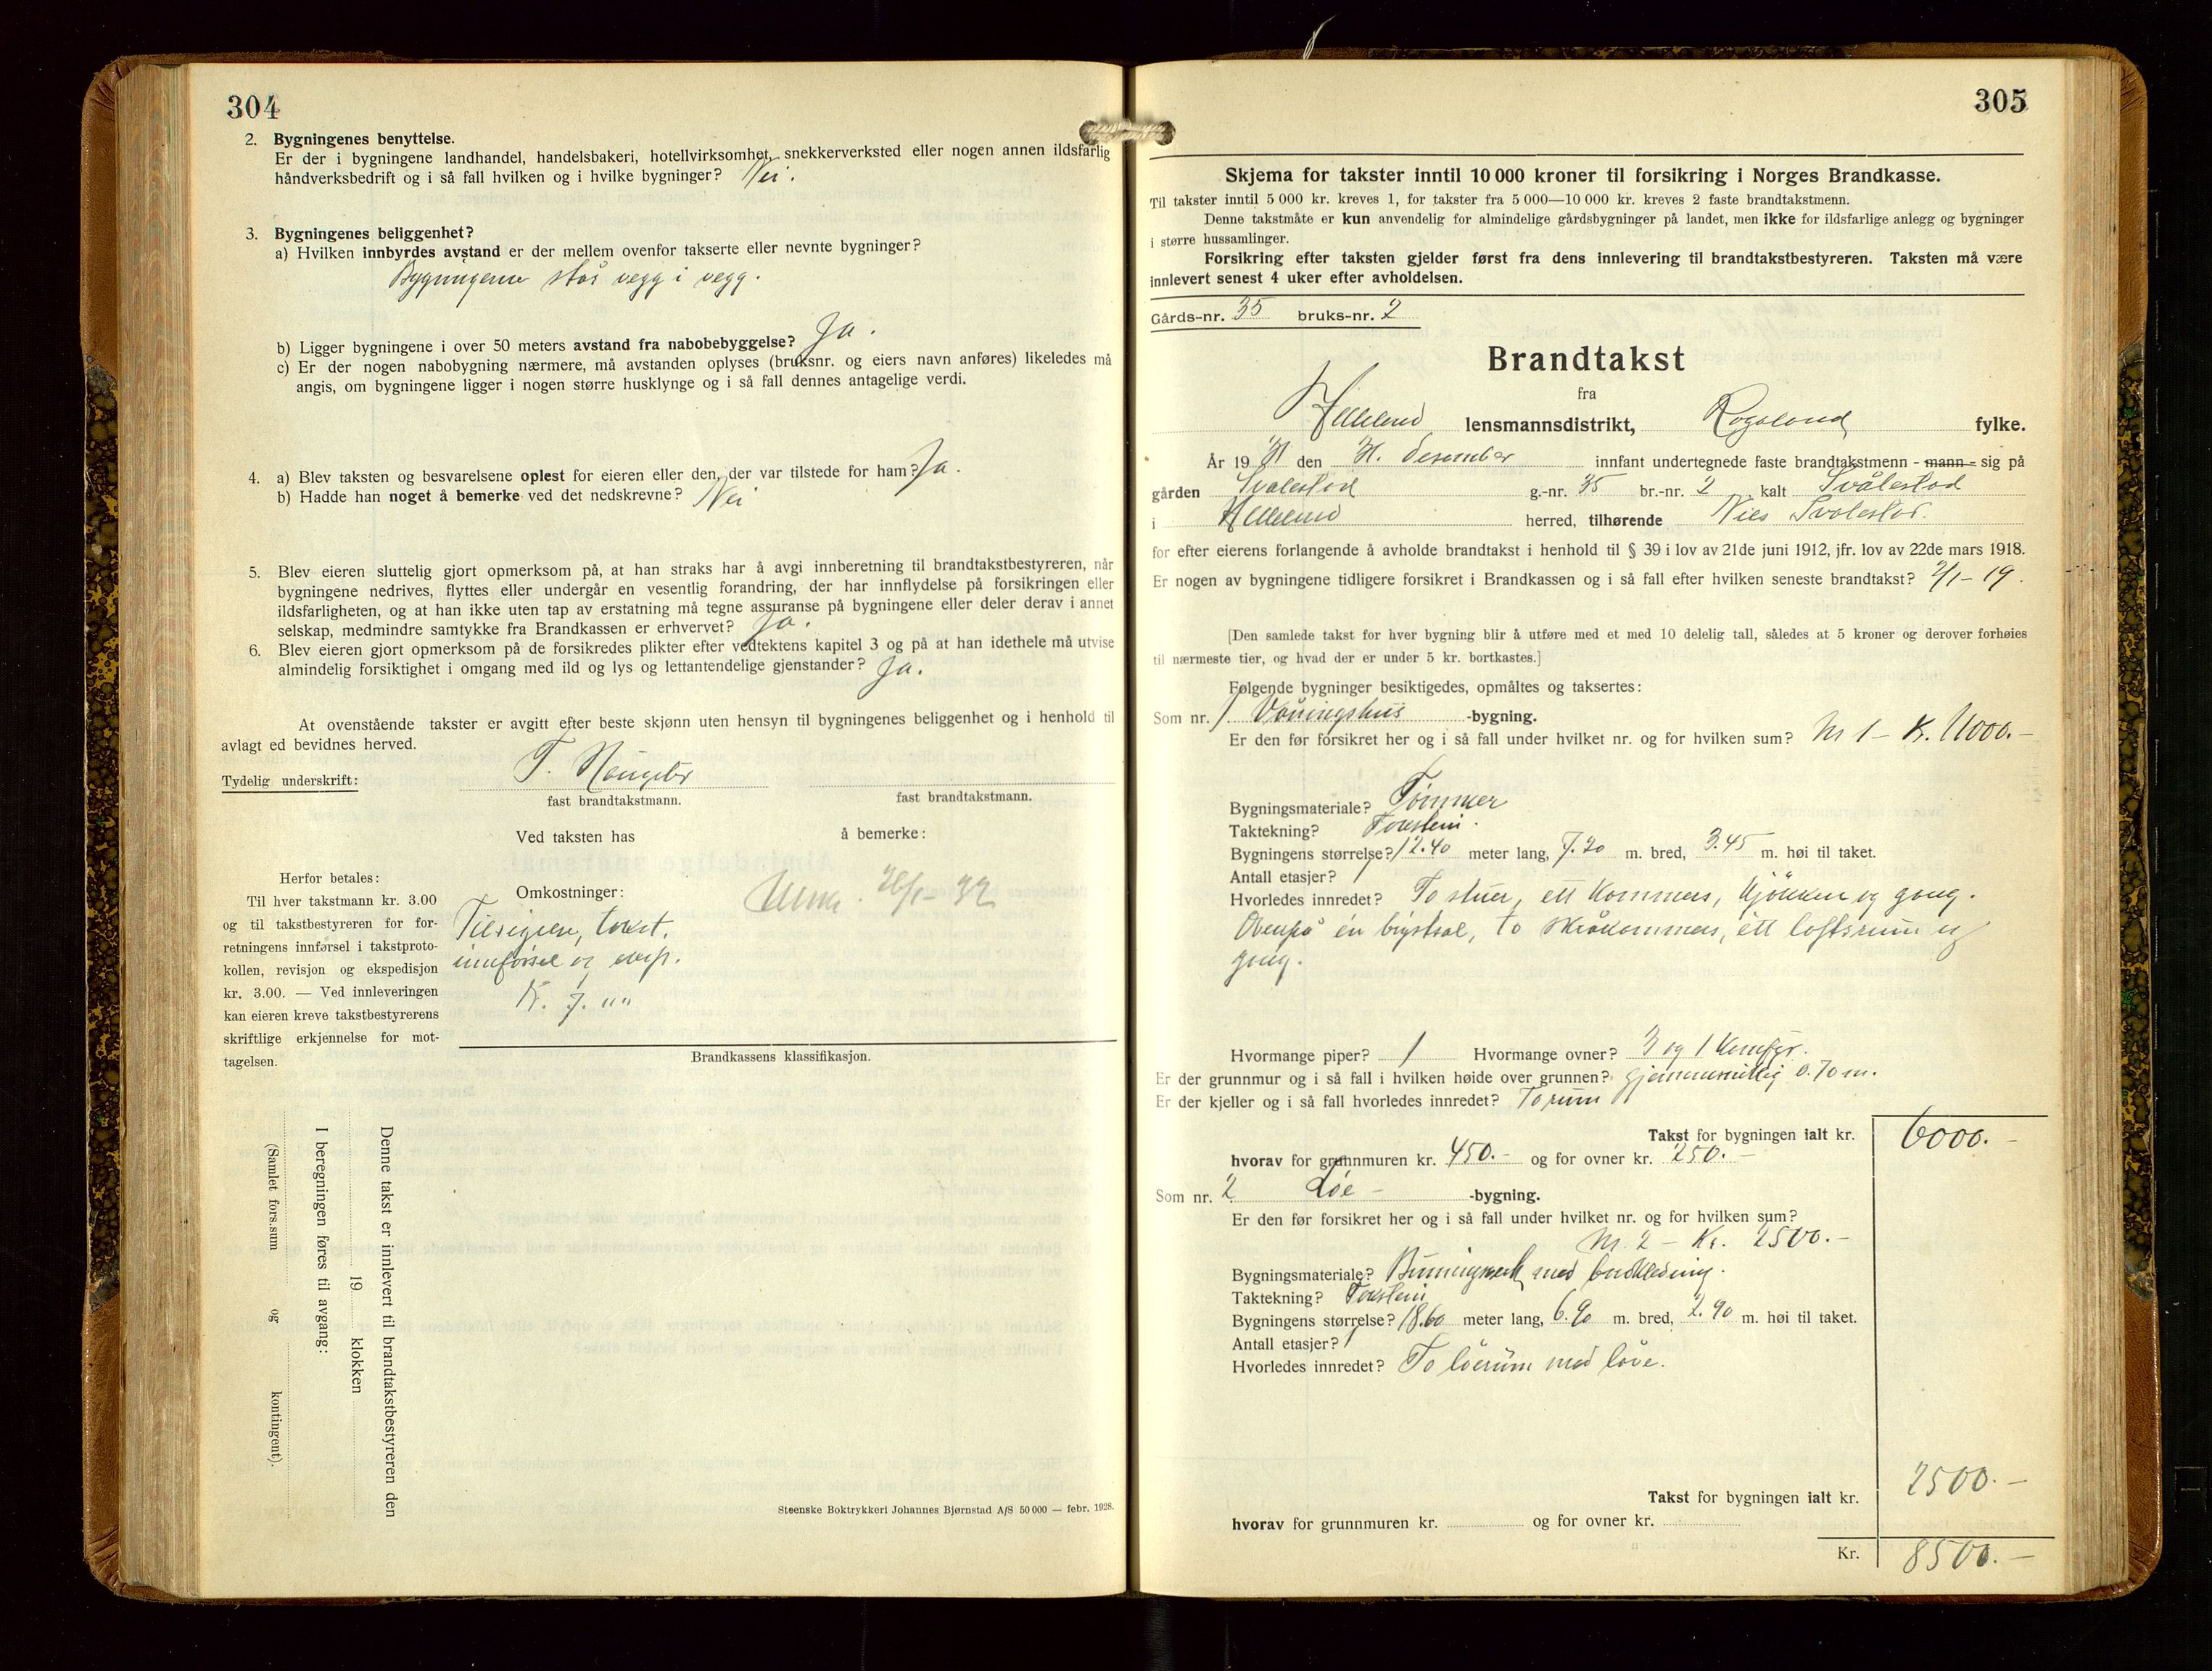 304
2. Bygningenes benyttelse.
Er der i bygningene landhandel, handelsbakeri, hotellvirksomhet, snekkerverksted eller nogen annen ildsfarlig
håndverksbedrift og i så fall hvilken og i hvilke bygninger? Nei.
3. Bygningenes beliggenhet?
a) Hvilken innbyrdes avstand er der mellem ovenfor takserte eller nevnte bygninger?
Bygningene står vegg i vegg.
b) Ligger bygningene i over 50 meters avstand fra nabobebyggelse? Ja.
c) Er der nogen nabobygning nærmere, må avstanden oplyses (bruksnr. og eiers navn anføres) likeledes må
angis, om bygningene ligger i nogen større husklynge og i så fall dennes antagelige verdi.
4. a) Blev taksten og besvarelsene oplest for eieren eller den, der var tilstede for ham? Ja.
b) Hadde han noget å bemerke ved det nedskrevne? Nei
5. Blev eieren sluttelig gjort opmerksom på, at han straks har å avgi innberetning til brandtakstbestyreren, når
bygningene nedrives, flyttes eller undergår en vesentlig forandring, der har innflydelse på forsikringen eller
ildsfarligheten, og at han ikke uten tap av erstatning må tegne assuranse på bygningene eller deler derav i annet
selskap, medmindre samtykke fra Brandkassen er erhvervet? Ja.
6. Blev eieren gjort opmerksom på de forsikredes plikter efter vedtektens kapitel 3 og på at han idethele må utvise
almindelig forsiktighet i omgang med ild og lys og lettantendelige gjenstander? Ja.
At ovenstående takster er avgitt efter beste skjønn uten hensyn til bygningenes beliggenhet og i henhold til
avlagt ed bevidnes herved.
Tydelig underskrift: T.
fast brandtakstmann. fast brandtakstmann.
Ved taksten has å bemerke:
Herfor betales:
Til hver takstmann kr. 3.00
og til takstbestyreren for for-
retningens innførsel i takstproto-
kollen, revisjon og ekspedisjon
kr. 3.00. — Ved innleveringen
kan eieren kreve takstbestyrerens
skriftlige erkjennelse for mot-
tagelsen.
Omkostninger:
Tilsigelse, takst,
innførsel og
K. 7. ""
26/1-32
Brandkassens klassifikasjon.
Denne takst er innlevert til brandtakstbestyreren den
19 klokken
I beregningen føres til avgang:
(Samlet fors.sum og kontingent).
Steenske Boktrykkeri Johannes Bjørnstad A/S 50 000 — febr. 1928.
305
Skjema for takster inntil 10 000 kroner til forsikring i Norges Brandkasse.
Til takster inntil 5 000 kr. kreves 1, for takster fra 5 000—10 000 kr. kreves 2 faste brandtakstmenn.
Denne takstmåte er kun anvendelig for almindelige gårdsbygninger på landet, men ikke for ildsfarlige anlegg og bygninger
i større hussamlinger.
Forsikring efter taksten gjelder først fra dens innlevering til brandtakstbestyreren. Taksten må være
innlevert senest 4 uker efter avholdelsen.
Gårds-nr. 35 bruks-nr. 2
Brandtakst
fra
Helleland lensmannsdistrikt, Rogaland fylke.
År 1931 den 31. desember innfant undertegnede faste brandtakstmenn - mann - sig på
gården Svalestad g.-nr. 35 br.-nr. 2 kalt Svålestad
i Helleland herred, tilhørende Nils Svalestad.
for efter eierens forlangende å avholde brandtakst i henhold til § 39 i lov av 21de juni 1912, jfr. lov av 22de mars 1918.
Er nogen av bygningene tidligere forsikret i Brandkassen og i så fall efter hvilken seneste brandtakst? 2/1-19.
[Den samlede takst for hver bygning blir å utføre med et med 10 delelig tall, således at 5 kroner og derover forhøies
til nærmeste tier, og hvad der er under 5 kr. bortkastes.]
Følgende bygninger besiktigedes, opmåltes og taksertes:
Som nr. 1 Våningshus -bygning.
Er den før forsikret her og i så fall under hvilket nr. og for hvilken sum? Nr 1 - Kr. 11000.-
Bygningsmateriale? Tømmer
Taktekning? Taksten.
Bygningens størrelse? 12.40 meter lang, 7.20 m. bred, 3.45 m. høi til taket.
Antall etasjer? 1
Hvorledes innredet? To stuer, ett kammers, kjøkken og gang.
Ovenpå én brystsal, to skråkammers, ett loftsrum og
gang.
Hvormange piper? 1 Hvormange ovner? 3 og 1 komfyr.
Er der grunnmur og i så fall i hvilken høide over grunnen? gjennemsnittlig 0.70 m.
Er der kjeller og i så fall hvorledes innredet? To rum
Takst for bygningen ialt kr. 6000.-
hvorav for grunnmuren kr. 450.- og for ovner kr. 250.-
Som nr. 2 Løe -bygning.
Er den før forsikret her og i så fall under hvilket nr. og for hvilken sum?
Nr. 2 - Kr. 2500.-
Bygningsmateriale? Binningverk med bordkledning.
Taktekning? Taksten
Bygningens størrelse? 18.60 meter lang, 6.90 m. bred, 2.90 m. høi til taket.
Antall etasjer? 1
Hvorledes innredet? To løerum med låve.
Takst for bygningen ialt kr. 2500.-
hvorav for grunnmuren kr. og for ovner kr.
Kr. 8500.-